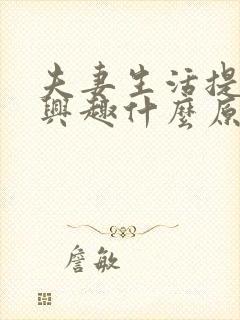 夫妻生活提
興趣什麼原
詹敏